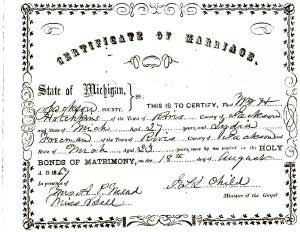 CERTIFICATE OF MARRIAGE.
State of Michigan,
Jackson COUNTY. } SS: THIS IS TO CERTIFY, That Wm H
Hotchkins of the Town of Rives County of Jackson
and State of Mich Aged 27 years, and Lydia
Freeman of the Town of Rives County of Jackson
State of Mich Aged 23 years, were by me united in the HOLY
BONDS OF MATRIMONY, on the 18th day of August
A. D. 1867
In presence of
Mrs A. P. Mead
Miss Bell
Child
Minister of the Gospel